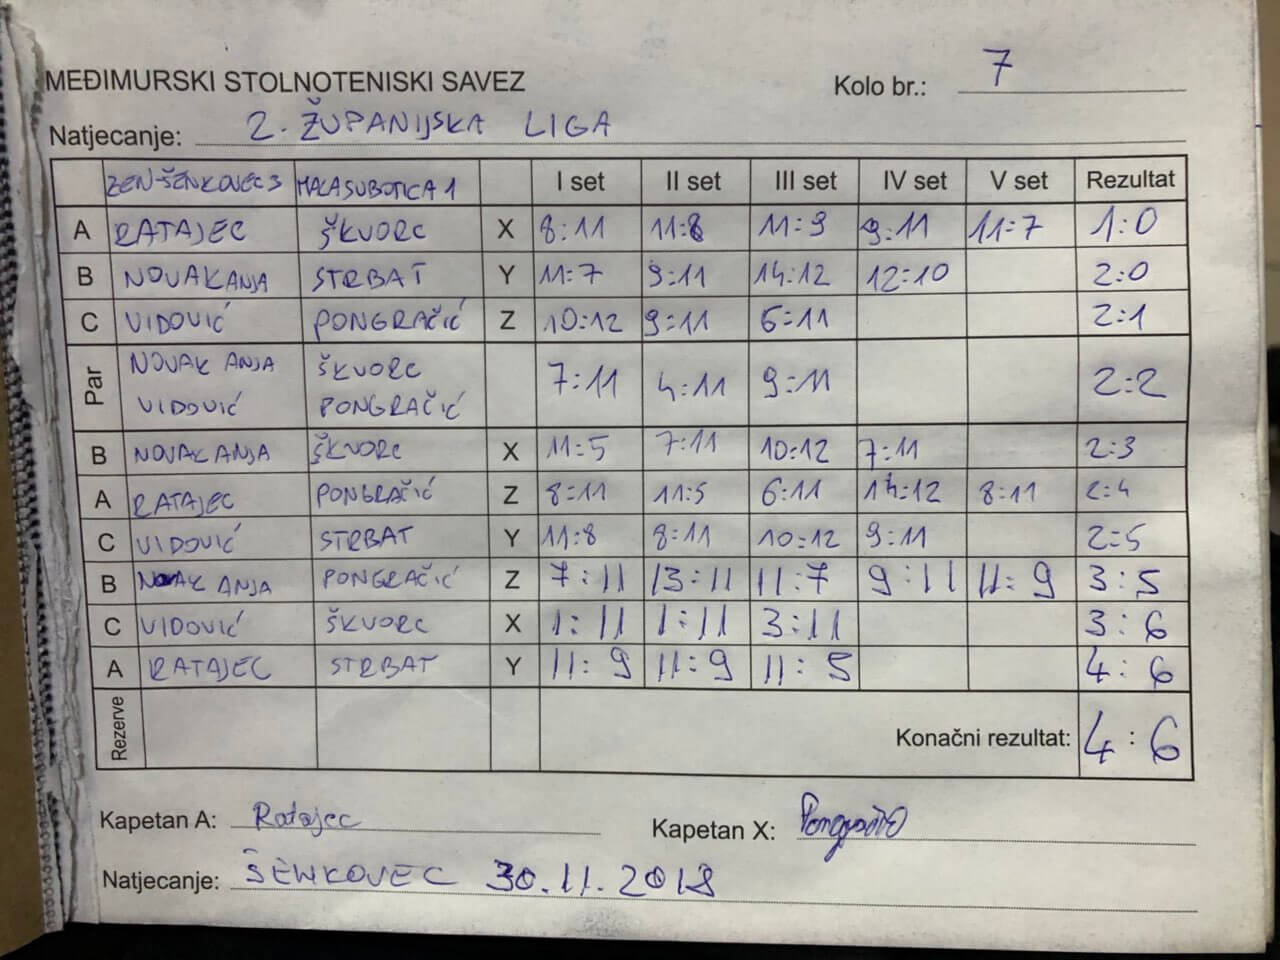 MEĐIMURSKI STOLNOTENISKI SAVEZ Kolo br.: 7
Natjecanje: 2. ŽUPANIJSKA LIGA
ZEN-ŠENKOVEC 3 MALA SUBOTICA 1 I set II set III set IV set V set Rezultat
A RATAJEC ŠKVORC X 8:11 11:8 11:9 9:11 11:7 1:0
B NOVAK ANJA STRBAT Y 11:7 9:11 14:12 12:10 2:0
C VIDOVIĆ PONGRAČIĆ Z 10:12 9:11 6:11 2:1
Par NOVAK ANJA VIDOVIĆ ŠKVORC PONGRAČIĆ 7:11 4:11 9:11 2:2
B NOVAK ANJA ŠKVORC X 11:5 7:11 10:12 7:11 2:3
A RATAJEC PONGRAČIĆ Z 8:11 11:5 6:11 14:12 8:11 2:4
C VIDOVIĆ STRBAT Y 11:8 8:11 10:12 9:11 2:5
B NOVAK ANJA PONGRAČIĆ Z 7:11 13:11 11:7 9:11 11:9 3:5
C VIDOVIĆ ŠKVORC X 1:11 1:11 3:11 3:6
A RATAJEC STRBAT Y 11:9 11:9 11:5 4:6
Rezerve Konačni rezultat: 4:6
Kapetan A: Ratajec Kapetan X: Pongračić
Natjecanje: ŠENKOVEC 30.11.2018